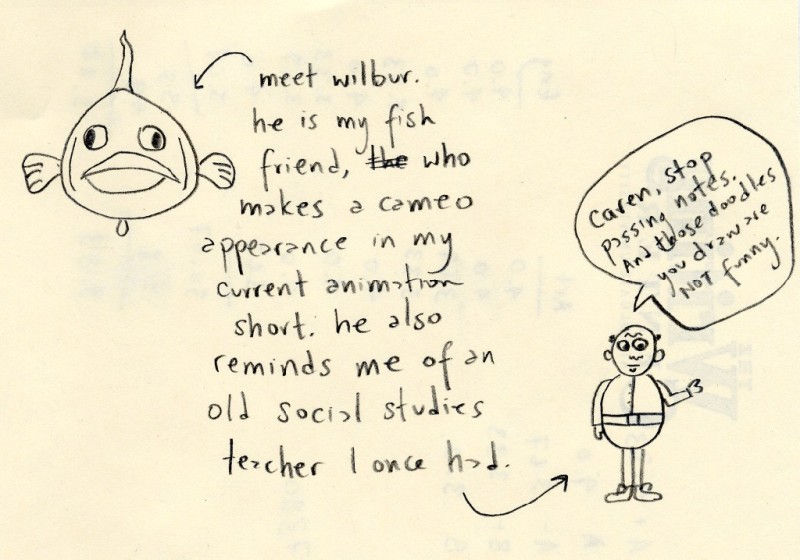 meet wilbur.
he is my fish
friend, the who
makes a cameo
appearance in my
current animation
short. he also
reminds me of an
old social studies
teacher I once had.
Caren, stop
passing notes.
And those doodles
you draw are
NOT funny.